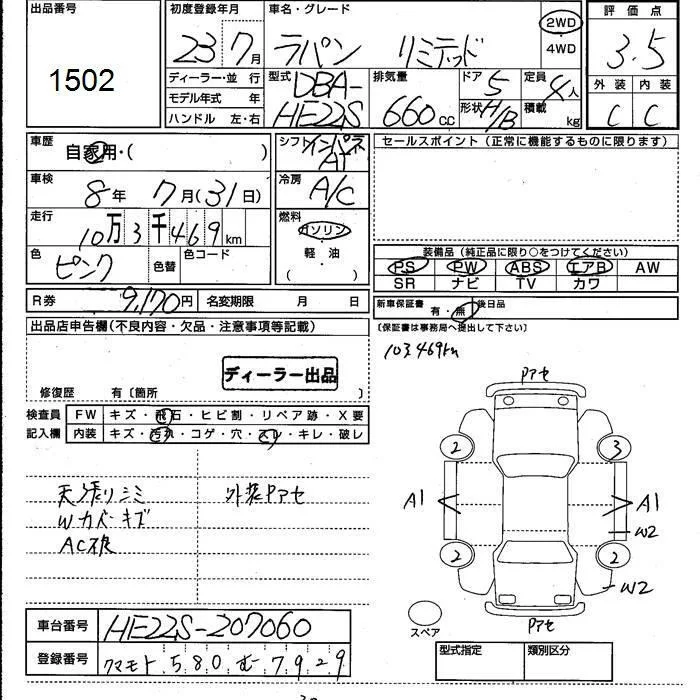 出品番号
1502
初度登録年月
23 7月
車名・グレード
ラパン リミテッド
2WD
・
4WD
評価点
3.5
ディーラー・並 行
モデル年式 年
ハンドル 左・右
型式
DBA-
HE22S
排気量
660cc
ドア 5
形状 H/B
定員 4人
積載 kg
外装 内装
C C
車歴
自家用・( )
シフト インパネ
AT
セールスポイント(正常に機能するものに限ります)
車検
8年 7月(31日)
冷房
A/C
走行
10万3千469km
燃料
ガソリン
軽・油
( ・ )
色
ピンク
色替
色コード
装備品(純正品に限り○をつけてください)
PS PW ABS エアB AW
SR ナビ TV カワ
R券 9,170円 名変期限 月 日
新車保証書 有・無 後日品
(保証書は事務局へ提出して下さい)
出品店申告欄(不良内容・欠品・注意事項等記載)
ディーラー出品
修復歴 有〔箇所 〕
103,469km
検査員
記入欄
FW キズ・飛石・ヒビ割・リペア跡・X要
内装 キズ・汚れ・コゲ・穴・スレ・キレ・破レ
天張りシミ
Wカバーキズ
AC不良
外装Pアセ
Pアセ
2 3
A1 A1
W2
2 2
W2
Pアセ
スペア
車台番号 HE22S-207060
登録番号 クマモト580む7929
型式指定 類別区分